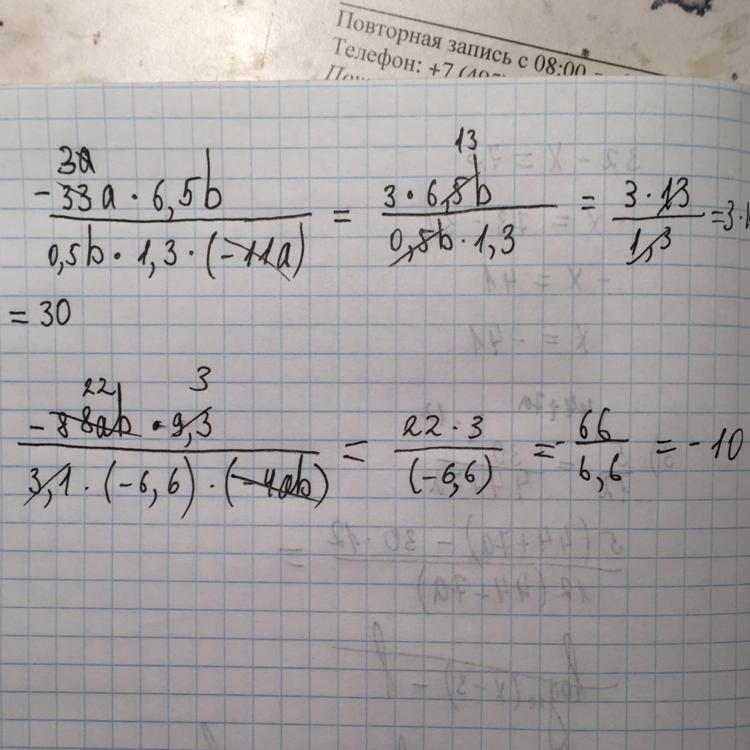 Повторная запись с 08:00
Телефон: +7 (495)
3a 13
-33a · 6,5b / 0,5b · 1,3 · (-11a) = 3 · 6,5b / 0,5b · 1,3 = 3 · 13 / 1,3 = 3·1
= 30
22 3
-88ab · 9,3 / 3,1 · (-6,6) · (-4ab) = 22 · 3 / (-6,6) = - 66 / 6,6 = -10